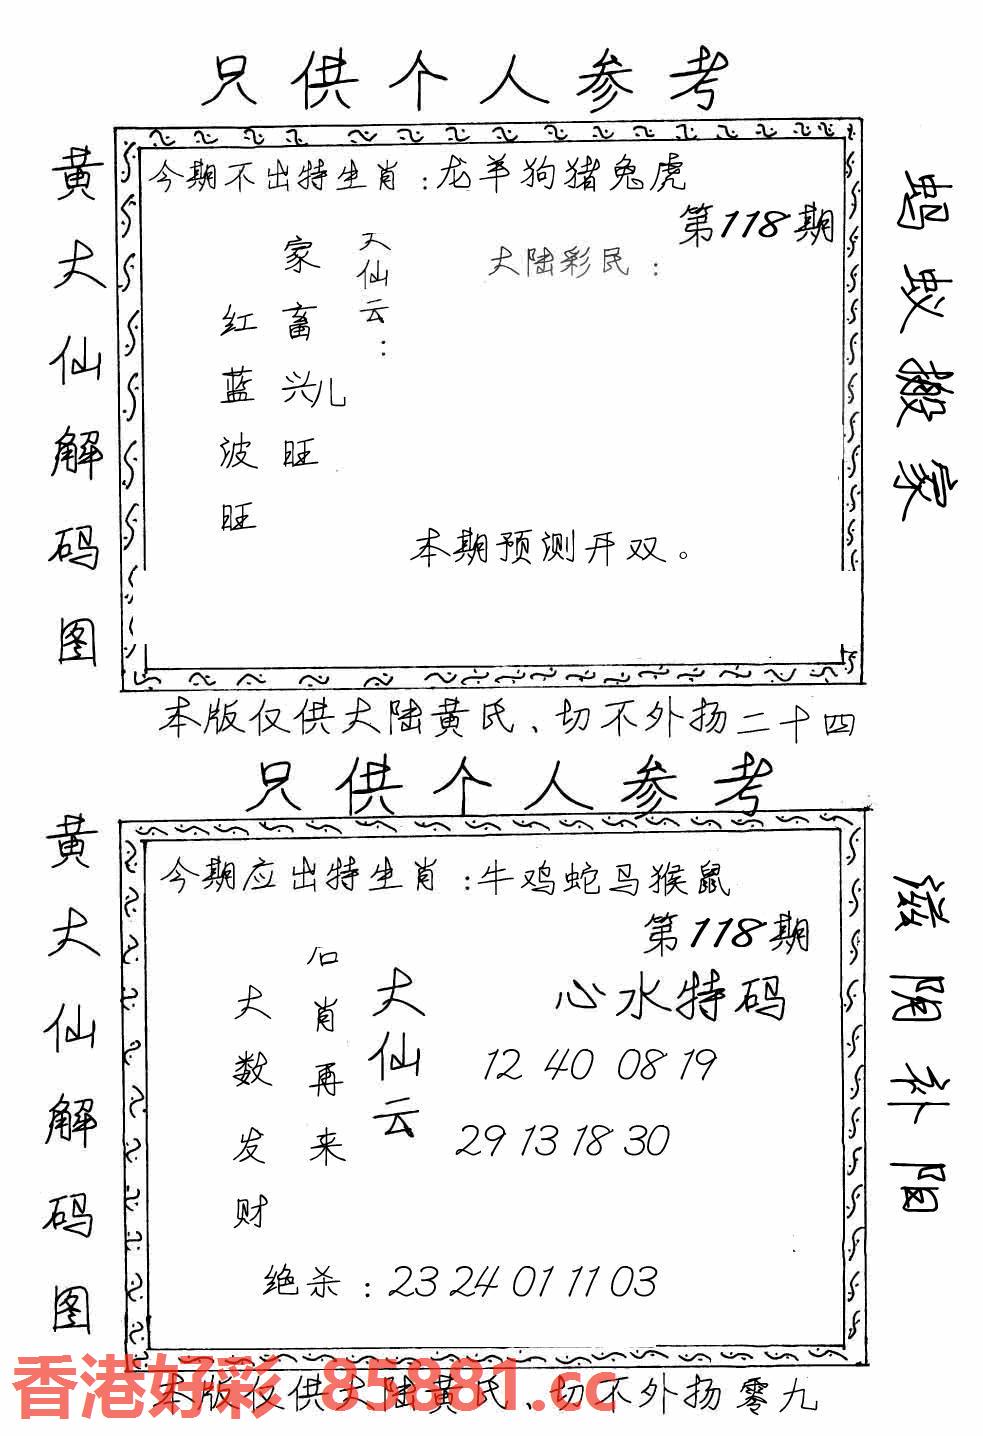 只供个人参考
黄大仙解码图
今期不出特生肖：龙羊狗猪兔虎
第118期
大仙云：
家畜兴旺
儿
红蓝波旺
大陆彩民：
本期预测开双。
蚂蚁搬家
本版仅供大陆黄氏、切不外扬二十四
只供个人参考
黄大仙解码图
今期应出特生肖：牛鸡蛇马猴鼠
第118期
大仙云
肖再来
大数发财
心水特码
12 40 08 19
29 13 18 30
绝杀：23 24 01 11 03
滋阴补阳
香港好彩 85881.cc
本版仅供大陆黄氏、切不外扬零九